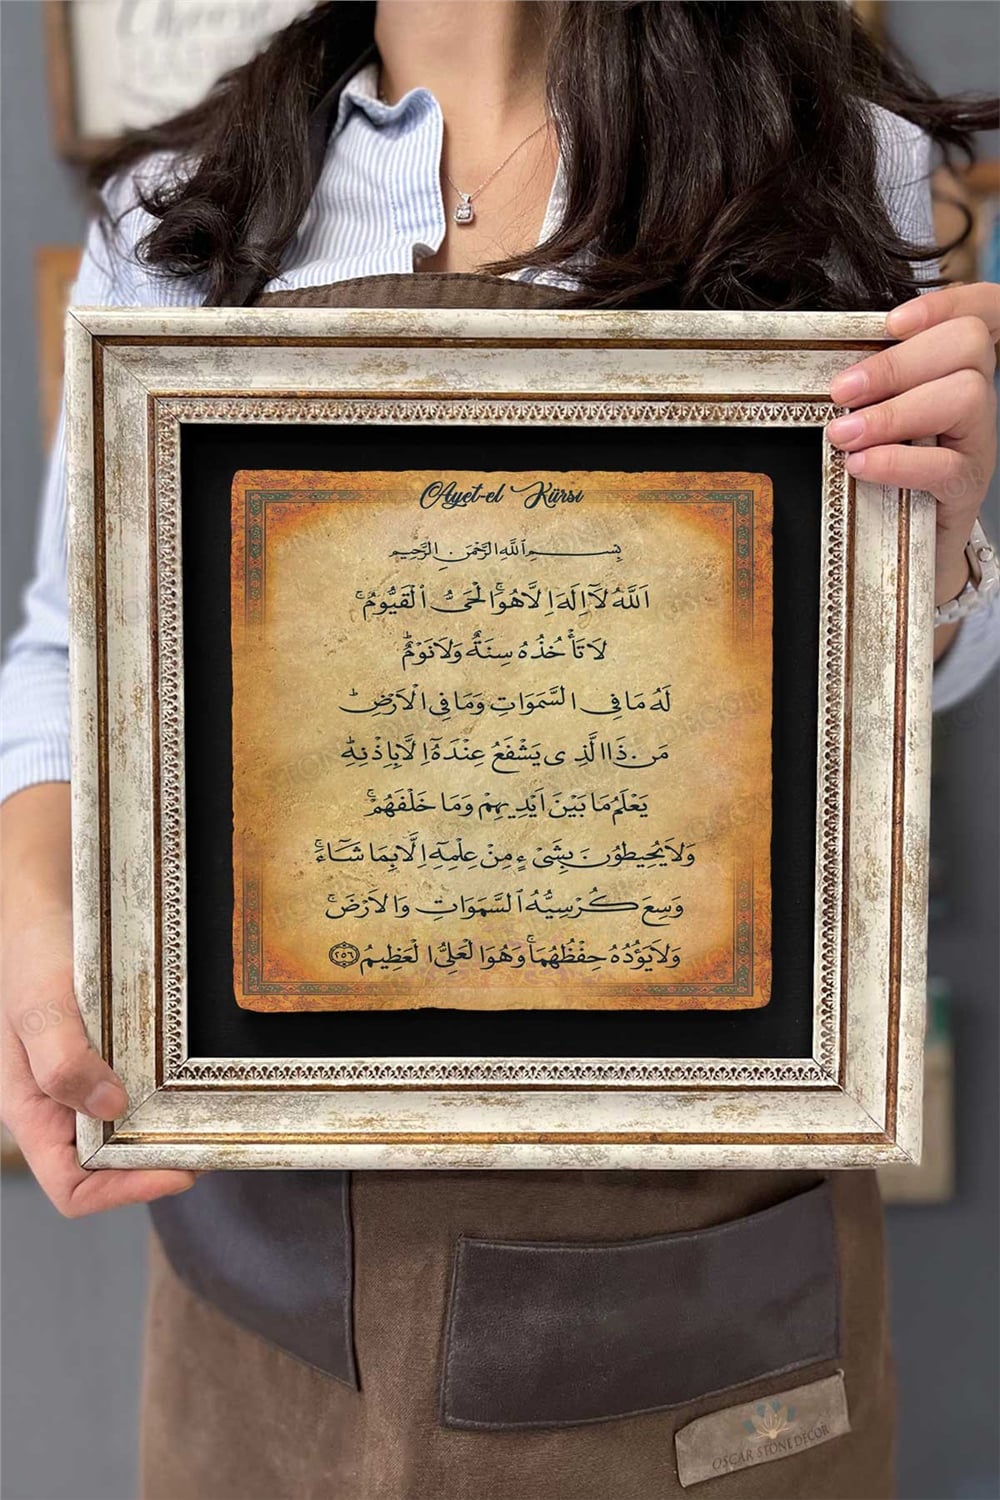 Ayet-el Kürsi
بِسْمِ اللَّهِ الرَّحْمَنِ الرَّحِيمِ
اَللَّهُ لَآ اِلَهَ اِلَّا هُوَۚ اَلْحَىُّ الْقَيُّومُۚ
لَا تَأْخُذُهُ سِنَةٌ وَلَا نَوْمٌؕ
لَهُ مَا فِى السَّمَوَاتِ وَمَا فِى الْاَرْضِؕ
مَنْ ذَا الَّذِى يَشْفَعُ عِنْدَهُٓ اِلَّا بِاِذْنِهِؕ
يَعْلَمُ مَا بَيْنَ اَيْدِيهِمْ وَمَا خَلْفَهُمْۚ
وَلَا يُحِيطُونَ بِشَىْءٍ مِنْ عِلْمِهِٓ اِلَّا بِمَا شَآءَۚ
وَسِعَ كُرْسِيُّهُ السَّمَوَاتِ وَالْاَرْضَۚ
وَلَا يَؤُدُهُ حِفْظُهُمَاۚ وَهُوَ الْعَلِىُّ الْعَظِيمُ ﴿٢٥٦﴾
OSCAR STONE DECOR